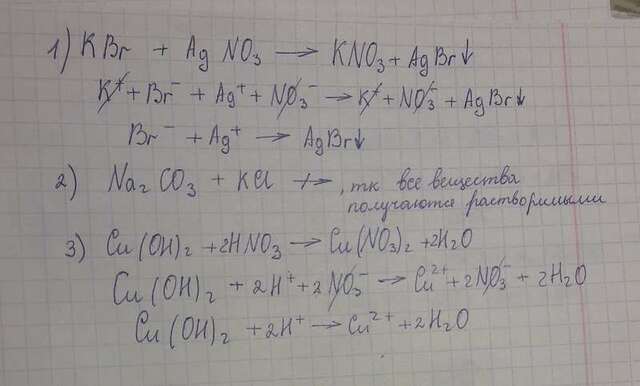 1) KBr + AgNO₃ → KNO₃ + AgBr↓
K⁺ + Br⁻ + Ag⁺ + NO₃⁻ → K⁺ + NO₃⁻ + AgBr↓
Br⁻ + Ag⁺ → AgBr↓
2) Na₂CO₃ + KCl ↛, тк все вещества
получаются растворимыми
3) Cu(OH)₂ + 2HNO₃ → Cu(NO₃)₂ + 2H₂O
Cu(OH)₂ + 2H⁺ + 2NO₃⁻ → Cu²⁺ + 2NO₃⁻ + 2H₂O
Cu(OH)₂ + 2H⁺ → Cu²⁺ + 2H₂O